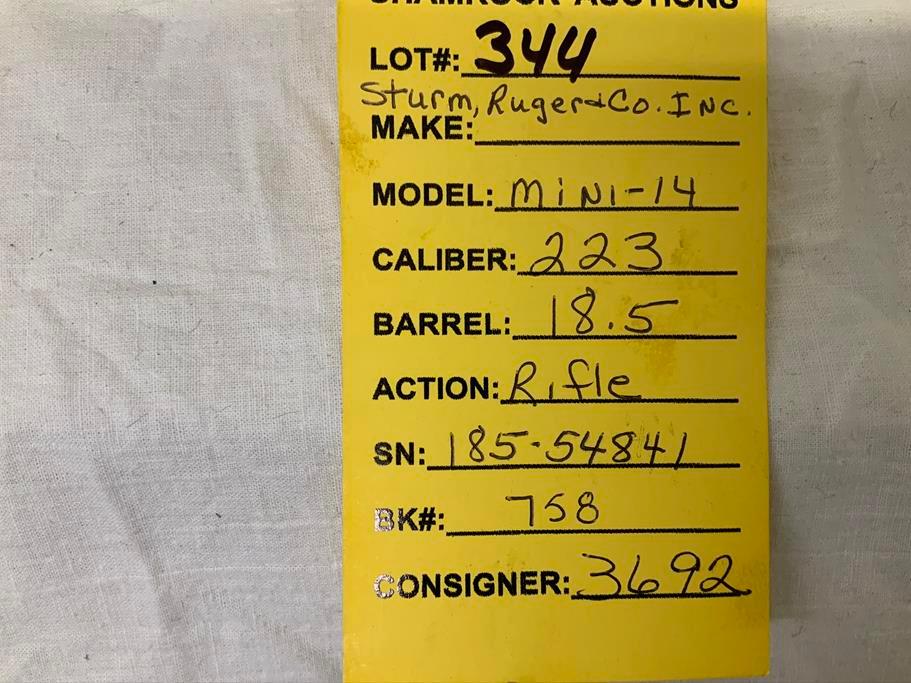 SHAMROCK AUCTIONS
LOT#: 344
Sturm, Ruger & Co. INC.
MAKE:
MODEL: MiNi-14
CALIBER: 223
BARREL: 18.5
ACTION: Rifle
SN: 185-54841
BK#: 758
CONSIGNER: 3692